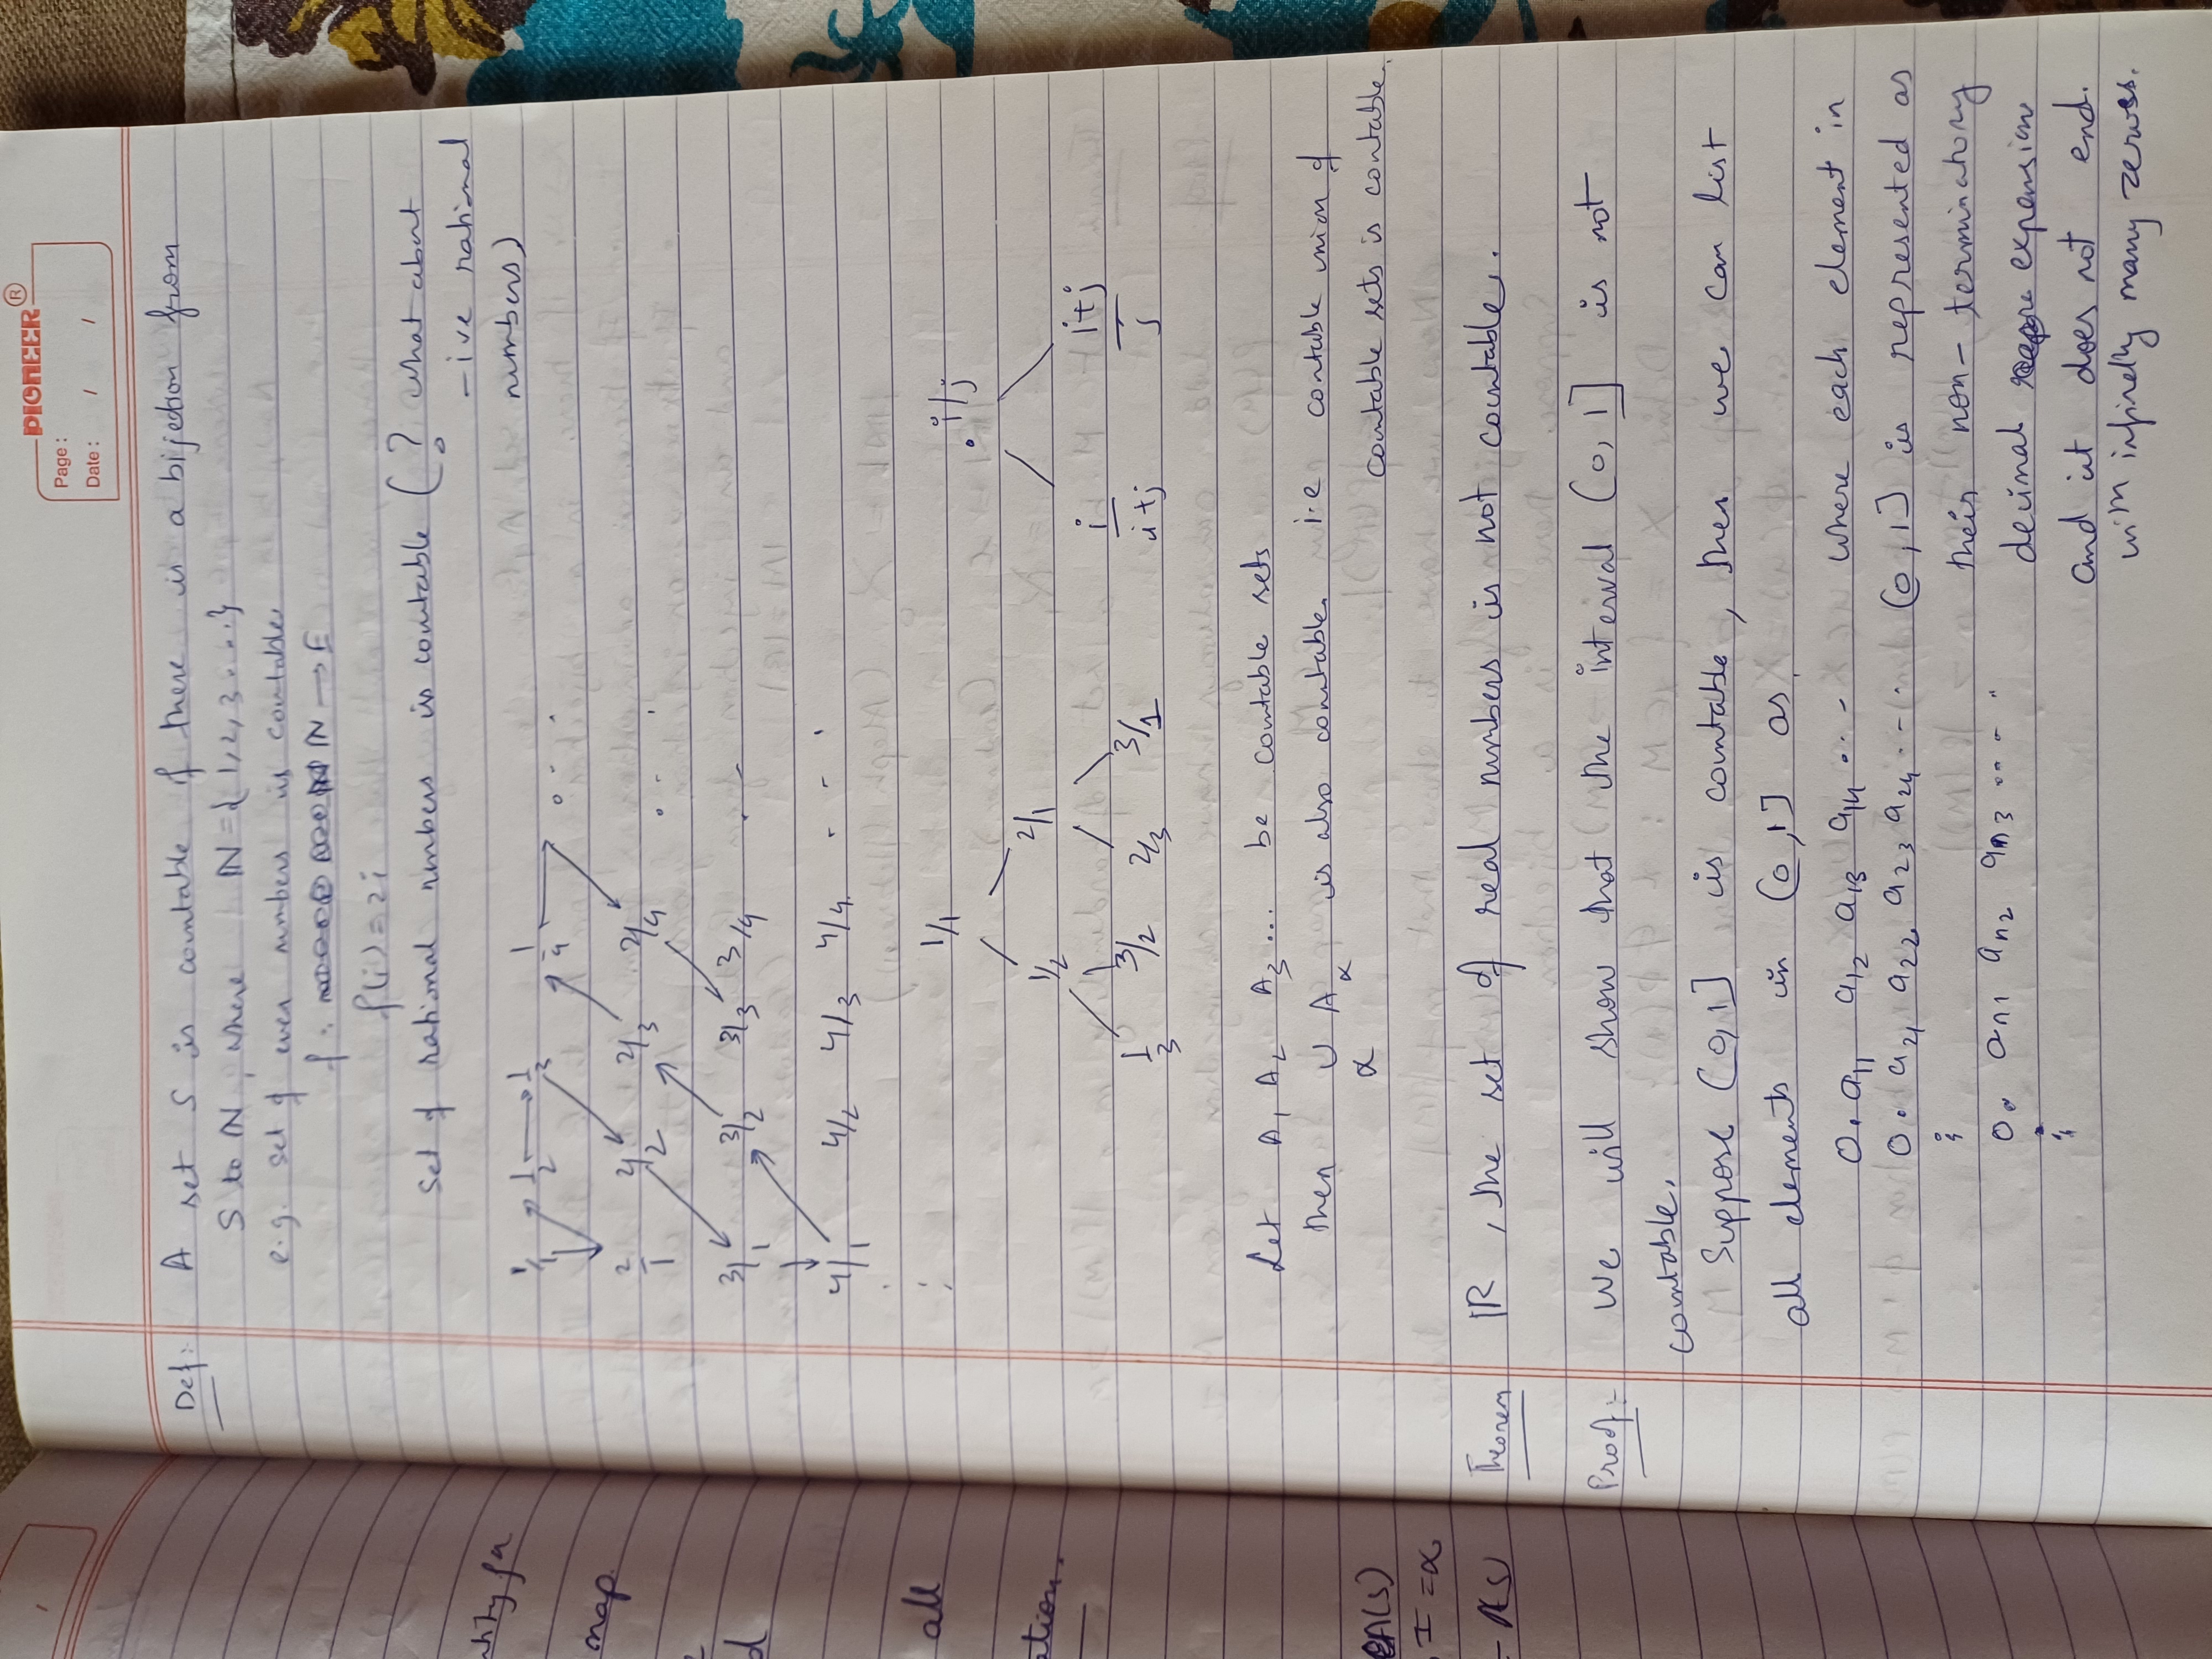 PIONEER®
Page :
Date : / /
Def:- A set S is countable if there is a bijection from
S to ℕ, where ℕ = {1, 2, 3 . . . }
e.g. set of even numbers is countable
f : ℕ → E
f(i) = 2i
Set of rational numbers is countable (? what about
-ive rational
numbers)
1/1 1/2 1/3 1/4 . . .
2/1 2/2 2/3 2/4 . . .
3/1 3/2 3/3 3/4 . .
4/1 4/2 4/3 4/4 . . .
1/1 . i/j
1/2 2/1
1/3 3/2 2/3 3/1 i/i+j i+j/j
Let A₁ A₂ A₃ ... be countable sets
Then ∪ A_α is also countable. i.e countable union of
α
countable sets is countable.
Theorem ℝ, the set of real numbers is not countable.
Proof:- We will show that the interval (0, 1] is not
countable.
Suppose (0, 1] is countable, then we can list
all elements in (0, 1] as
0. a₁₁ a₁₂ a₁₃ a₁₄ . . . where each element in
0. a₂₁ a₂₂ a₂₃ a₂₄ . . . (0, 1] is represented as
their non-terminatory
0. aₙ₁ aₙ₂ aₙ₃ . . . . decimal expension
and it does not end.
with infinetly many zeroes.
map
d
all
ation.
I = α